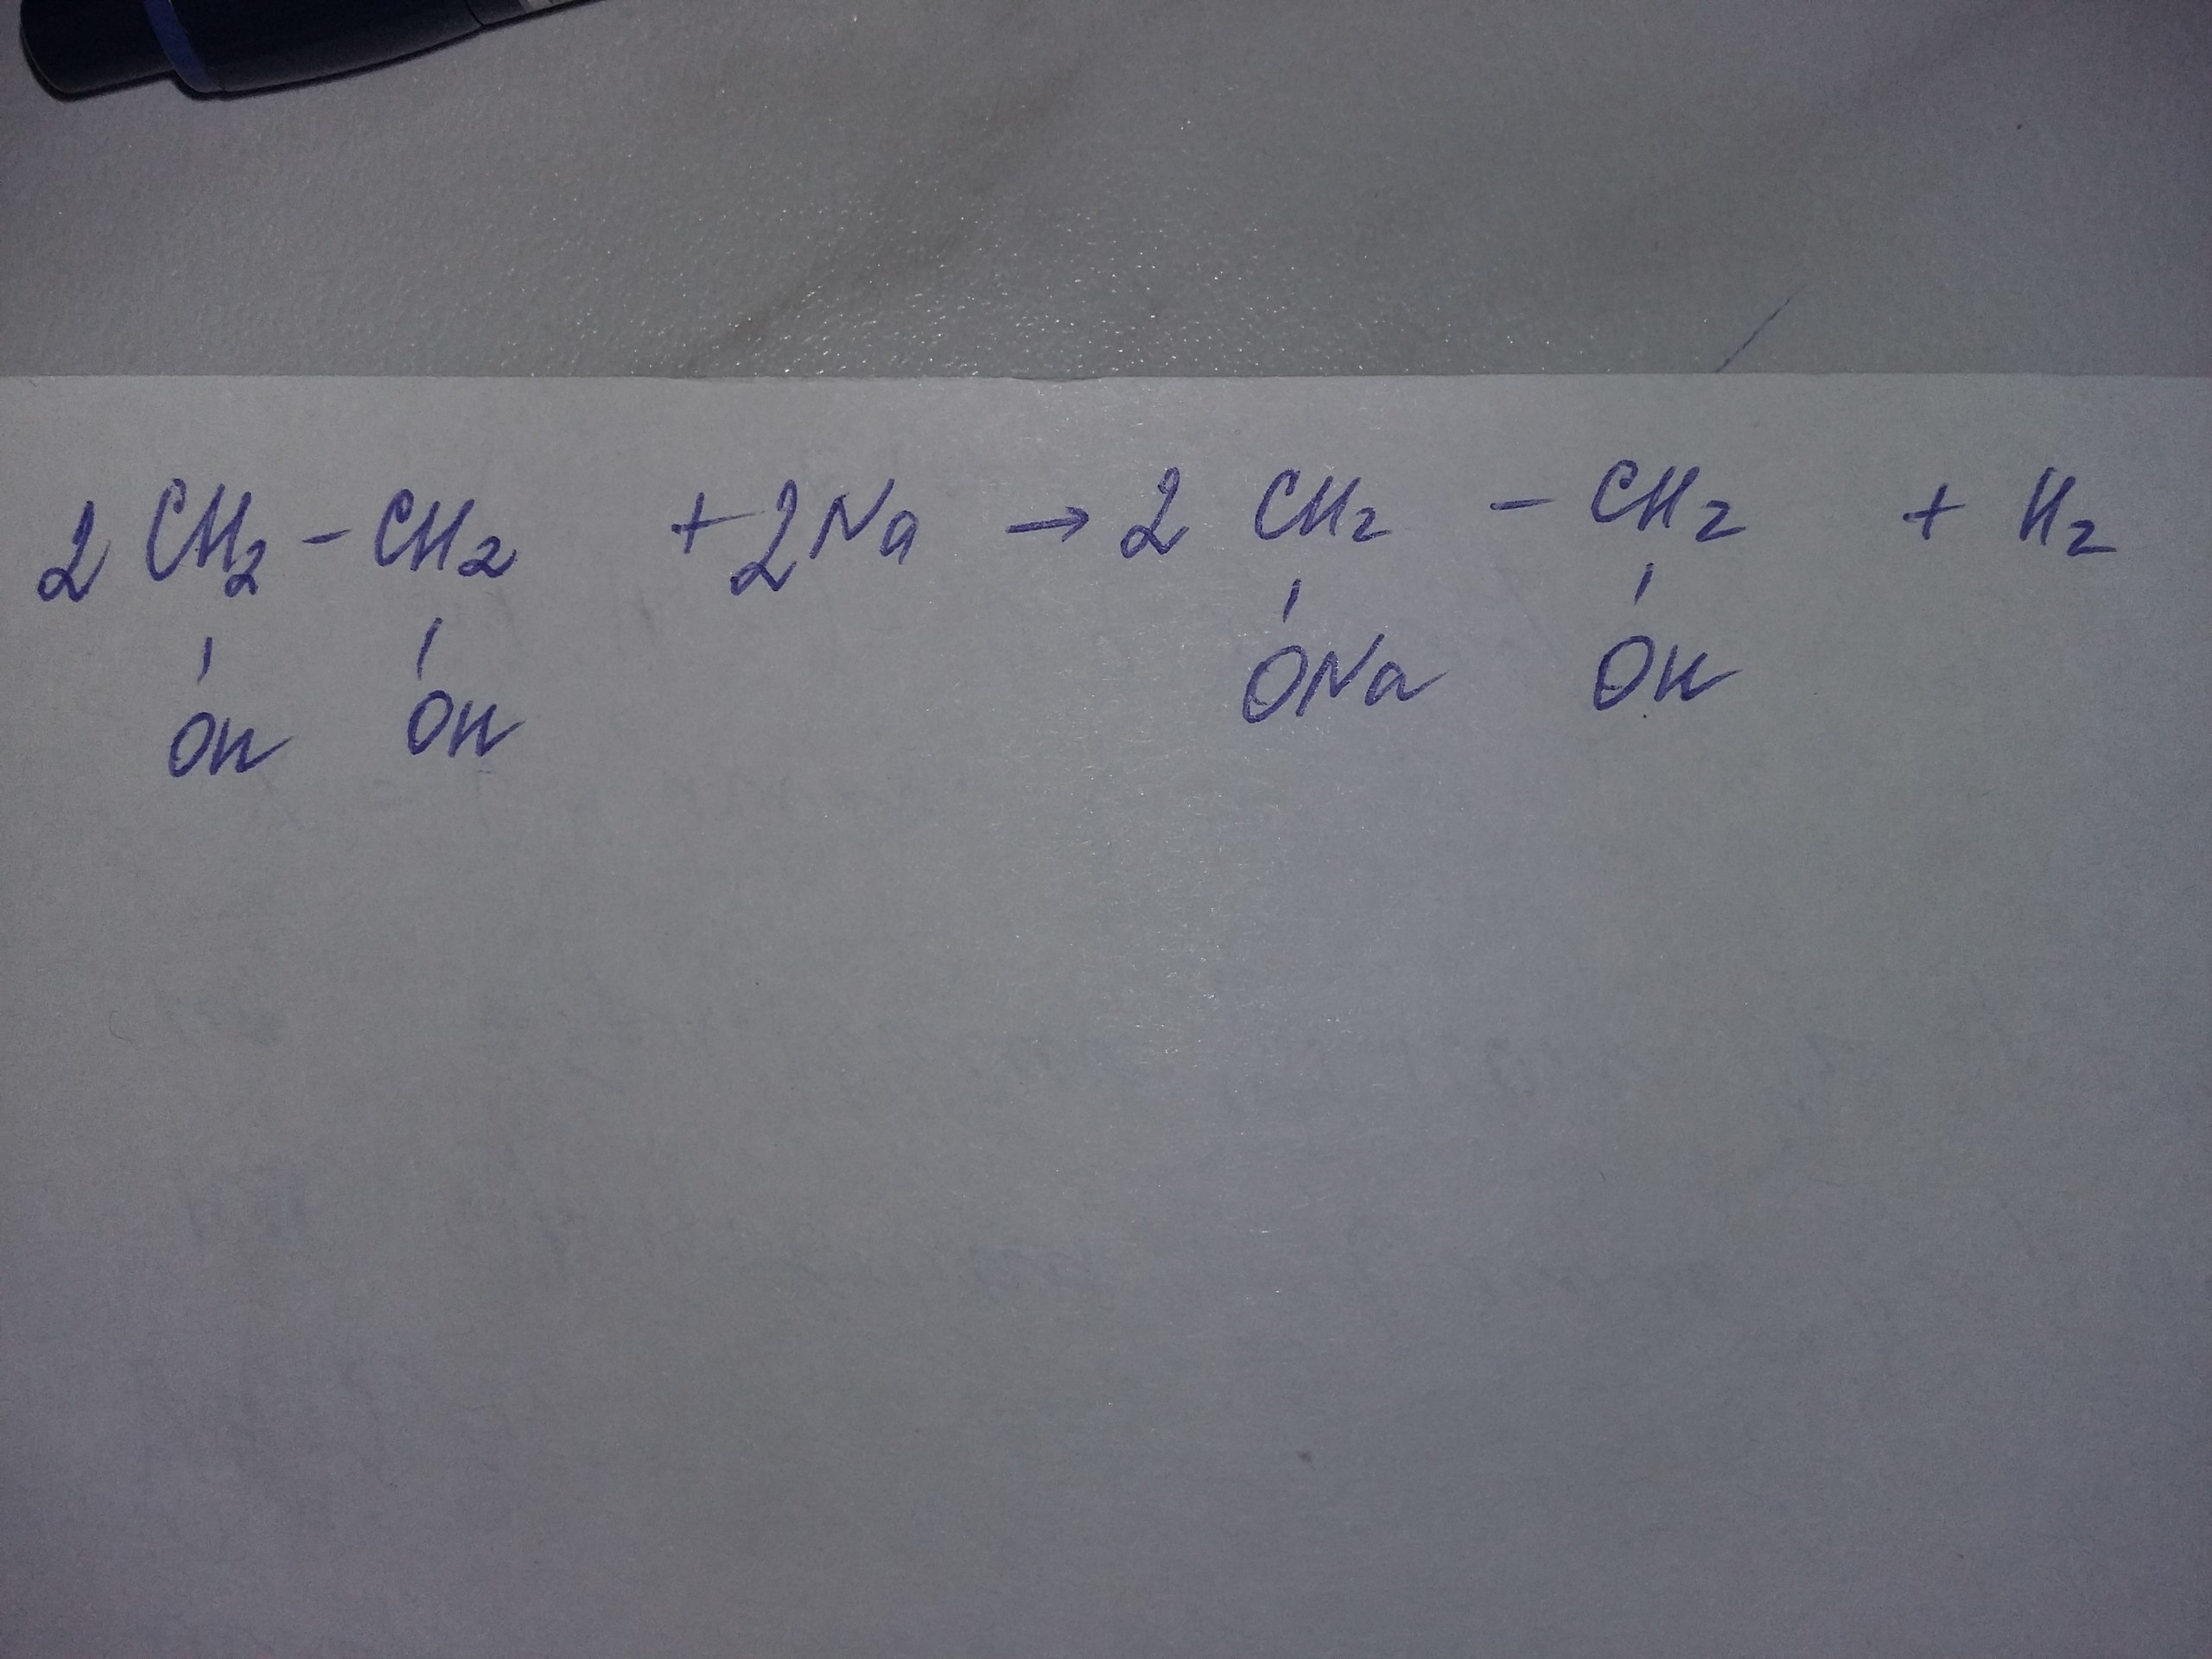 2 CH2 - CH2 + 2Na → 2 CH2 - CH2 + H2
OH OH ONa OH